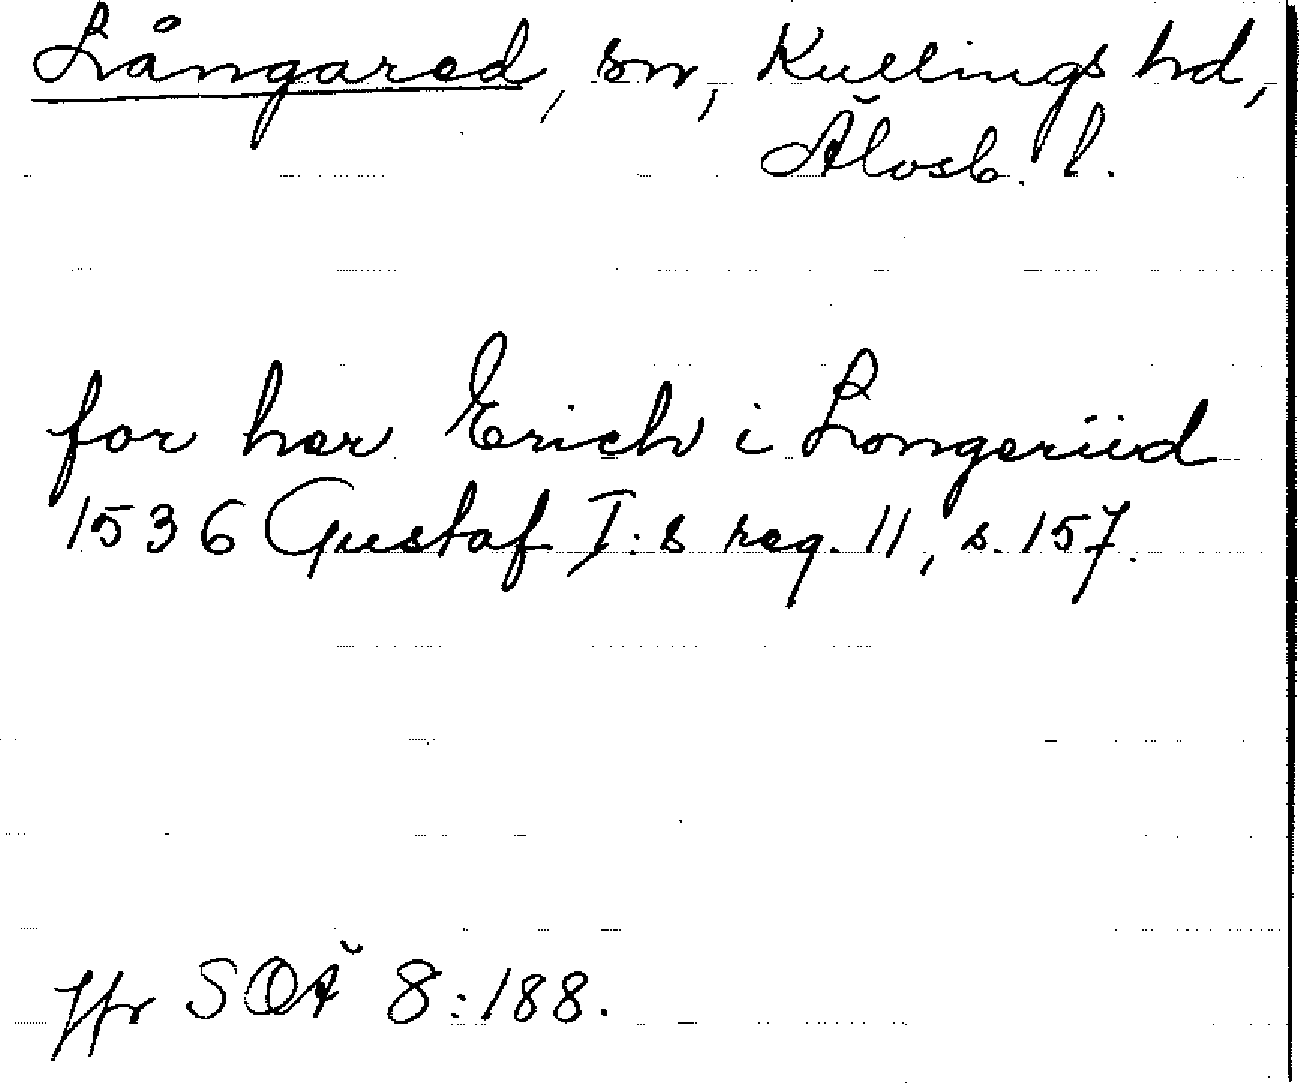 Långared, sn, Kullings hd,
Älvsb. l.
for her Erich i Longeriid
1536 Gustaf I:s reg. 11, s. 157.
Jfr SOÄ 8:188.